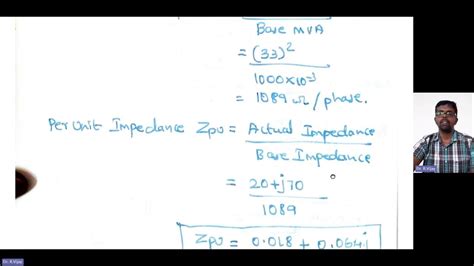 Base MVA
= (33)²
1000×10⁻³
= 1089 Ω/phase.
Per Unit Impedance Zpu = Actual Impedance
Base Impedance
= 20+j70
1089
Zpu = 0.018 + 0.064j
Dr. K Vijay